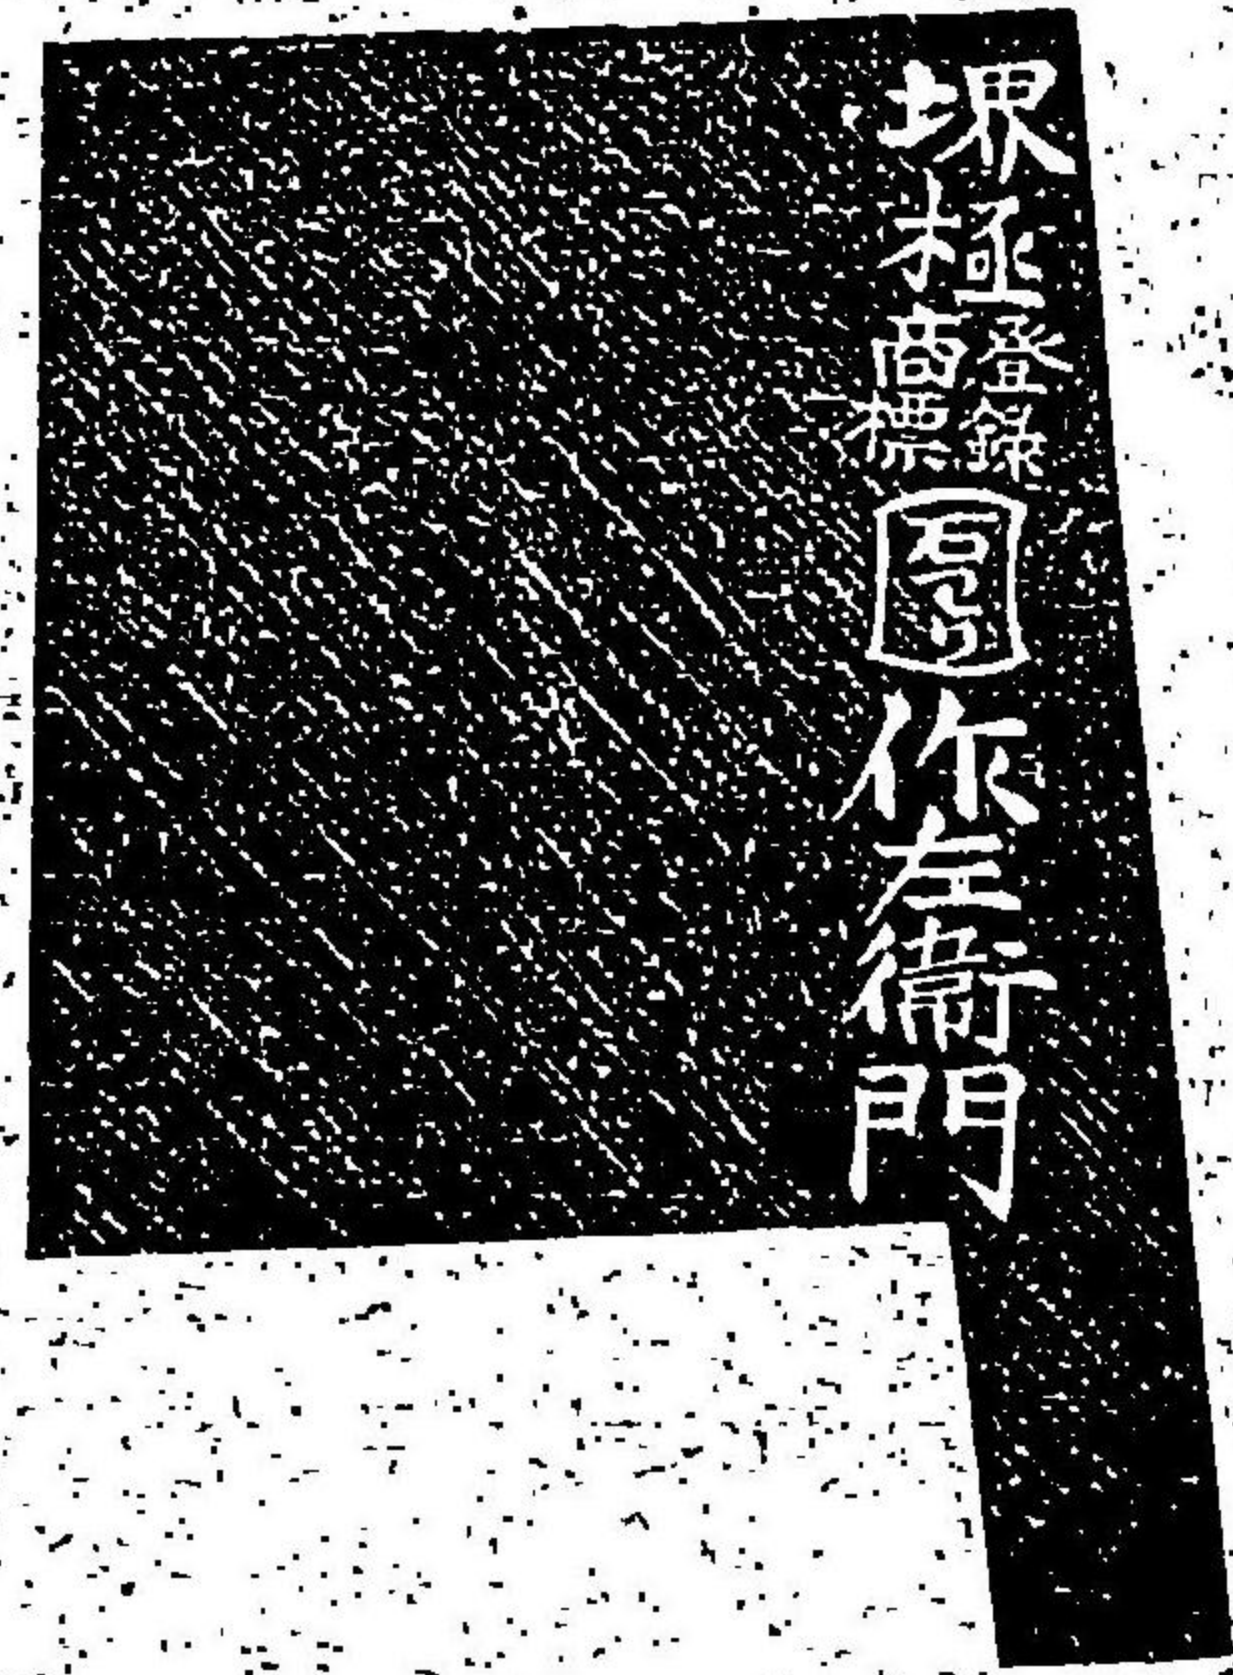 堺極
登録
商標
石
作左衛門